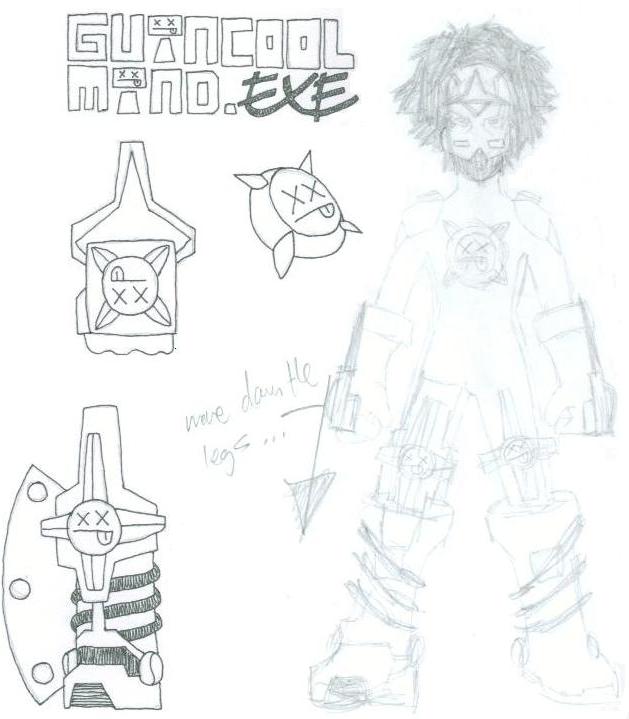 GUINCOOL
MIND.EXE
move down the
legs...